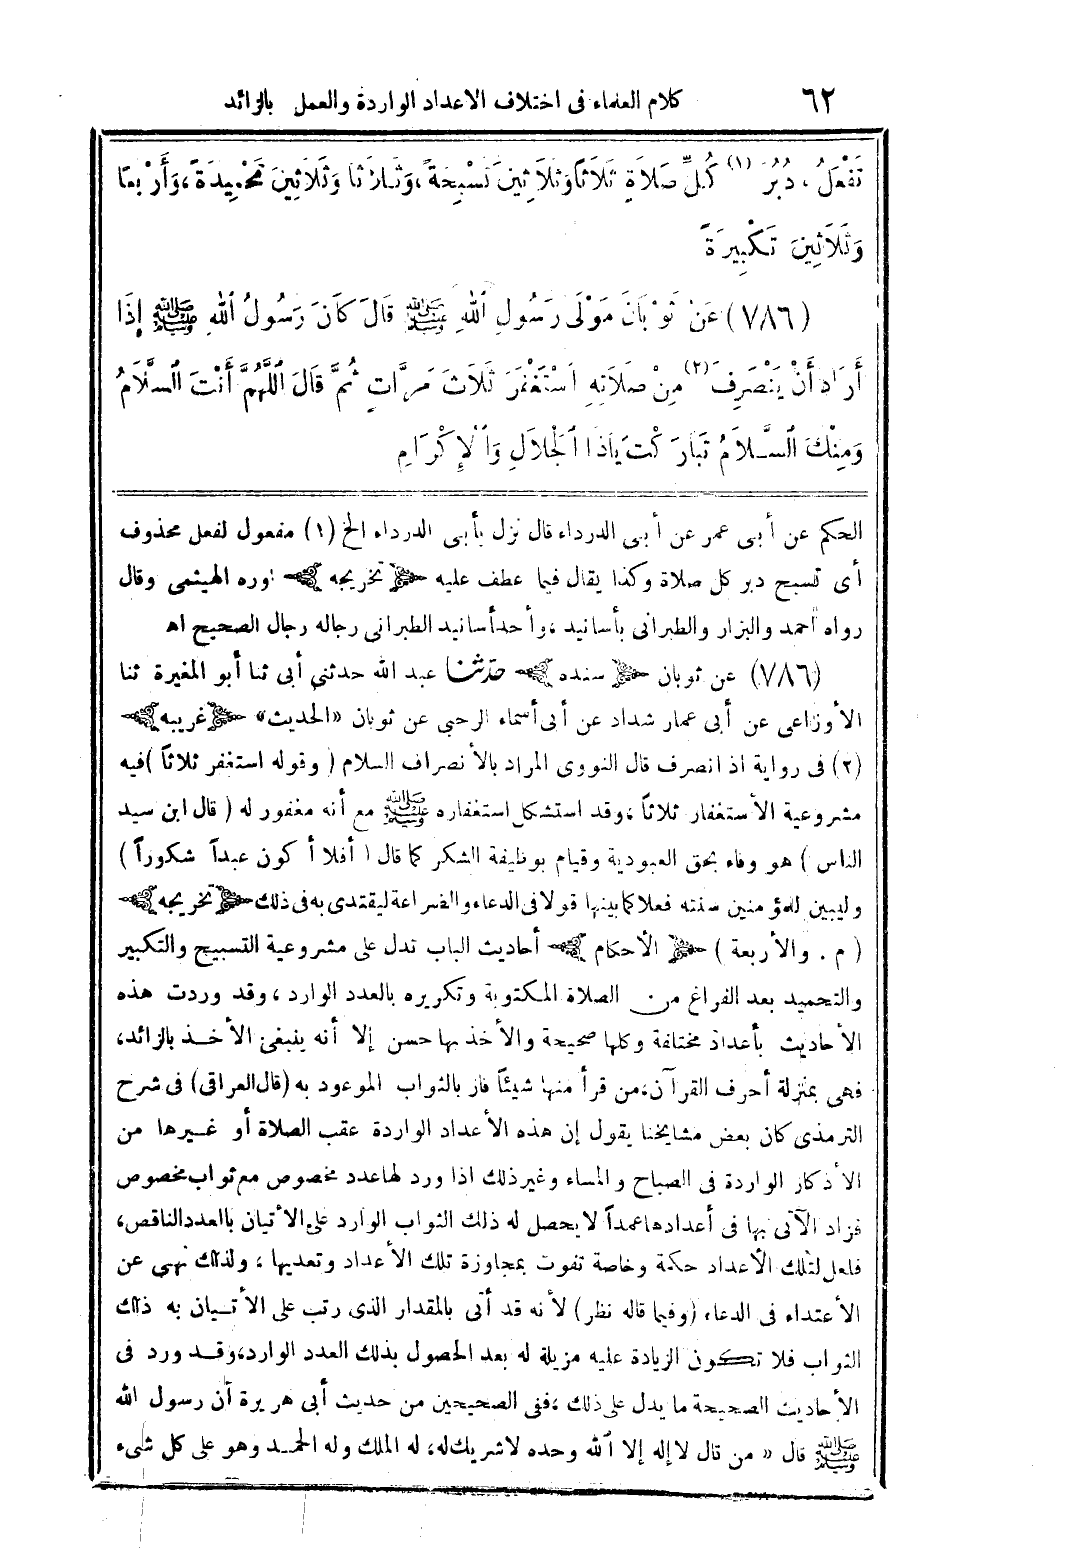 ٦٢ كلام العلماء فى اختلاف الاعداد الواردة والعمل بالزائد
تَفْعَلُ ، دُبُرَ (١) كُلِّ صَلَاةٍ ثَلَاثًا وَثَلَاثِينَ تَسْبِيحَةً ، وَثَلَاثًا وَثَلَاثِينَ تَحْمِيدَةً ، وَأَرْبَعًا
وَثَلَاثِينَ تَكْبِيرَةً
(٧٨٦) عَنْ ثَوْبَانَ مَوْلَى رَسُولِ اللهِ ﷺ قَالَ كَانَ رَسُولُ اللهِ ﷺ إِذَا
أَرَادَ أَنْ يَنْصَرِفَ (٢) مِنْ صَلَاتِهِ اسْتَغْفَرَ ثَلَاثَ مَرَّاتٍ ثُمَّ قَالَ اللَّهُمَّ أَنْتَ السَّلَامُ
وَمِنْكَ السَّلَامُ تَبَارَكْتَ يَاذَا الْجَلَالِ وَالْإِكْرَامِ
الحكم عن أبى عمر عن أبى الدرداء قال نزل بأبى الدرداء الخ (١) مفعول لفعل محذوف
أى تسبح دبر كل صلاة وكذا يقال فيما عطف عليه ﴿ تخريجه ﴾ أورده الهيثمى وقال
رواه أحمد والبزار والطبرانى بأسانيد ، وأحد أسانيد الطبرانى رجاله رجال الصحيح اهـ
(٧٨٦) عن ثوبان ﴿ سنده ﴾ حدثنا عبد الله حدثنى أبى ثنا أبو المغيرة ثنا
الأوزاعى عن أبى عمار شداد عن أبى أسماء الرحبى عن ثوبان «الحديث» ﴿ غريبه ﴾
(٢) فى رواية اذا انصرف قال النووى المراد بالأنصراف السلام ( وقوله استغفر ثلاثاً ) فيه
مشروعية الأستغفار ثلاثاً ، وقد استشكل استغفاره ﷺ مع أنه مغفور له ( قال ابن سيد
الناس ) هو وفاء بحق العبودية وقيام بوظيفة الشكر كما قال ( أفلا أكون عبداً شكوراً )
وليبين للمؤمنين سنته فعلا كما بينها قولا فى الدعاء والضراعة ليقتدى به فى ذلك ﴿ تخريجه ﴾
( م . والأربعة ) ﴿ الأحكام ﴾ أحاديث الباب تدل على مشروعية التسبيح والتكبير
والتحميد بعد الفراغ من الصلاة المكتوبة وتكريره بالعدد الوارد ، وقد وردت هذه
الأحاديث بأعداد مختلفة وكلها صحيحة والأخذ بها حسن إلا أنه ينبغى الأخذ بالزائد ،
فهى بمنزلة أحرف القرآن ، من قرأ منها شيئاً فاز بالثواب الموعود به (قال العراقى) فى شرح
الترمذى كان بعض مشايخنا يقول إن هذه الأعداد الواردة عقب الصلاة أو غيرها من
الأذكار الواردة فى الصباح والمساء وغير ذلك اذا ورد لها عدد مخصوص مع ثواب مخصوص
فزاد الآتى بها فى أعدادها عمداً لا يحصل له ذلك الثواب الوارد على الأتيان باالعدد الناقص ،
فلعل لتلك الأعداد حكمة وخاصة تفوت بمجاوزة تلك الأعداد وتعديها ، ولذلك نهى عن
الأعتداء فى الدعاء (وفيما قاله نظر) لأنه قد أتى بالمقدار الذى رتب على الأتيان به ذلك
الثواب فلا تكون الزيادة عليه مزيلة له بعد الحصول بذلك العدد الوارد ، وقد ورد فى
الأحاديث الصحيحة ما يدل على ذلك ، ففى الصحيحين من حديث أبى هريرة أن رسول الله
ﷺ قال « من قال لا إله إلا الله وحده لا شريك له ، له الملك وله الحمد وهو على كل شىء